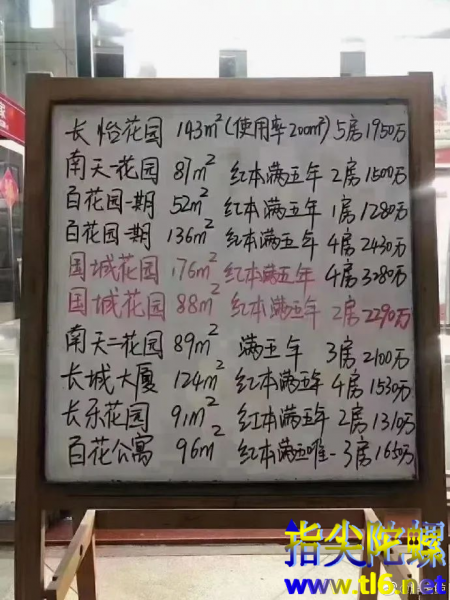 长怡花园 143m²(使用率200m²) 5房1950万
南天一花园 87m² 红本满五年 2房1500万
百花园一期 52m² 红本满五年 1房1280万
百花园一期 136m² 红本满五年 4房2430万
国城花园 176m² 红本满五年 4房3280万
国城花园 88m² 红本满五年 2房2290万
南天二花园 89m² 满五年 3房2100万
长城大厦 124m² 红本满五年 4房1530万
长乐花园 91m² 红本满五年 2房1310万
百花公寓 96m² 红本满五唯一 3房1650万
指尖陀螺
www.tl6.net